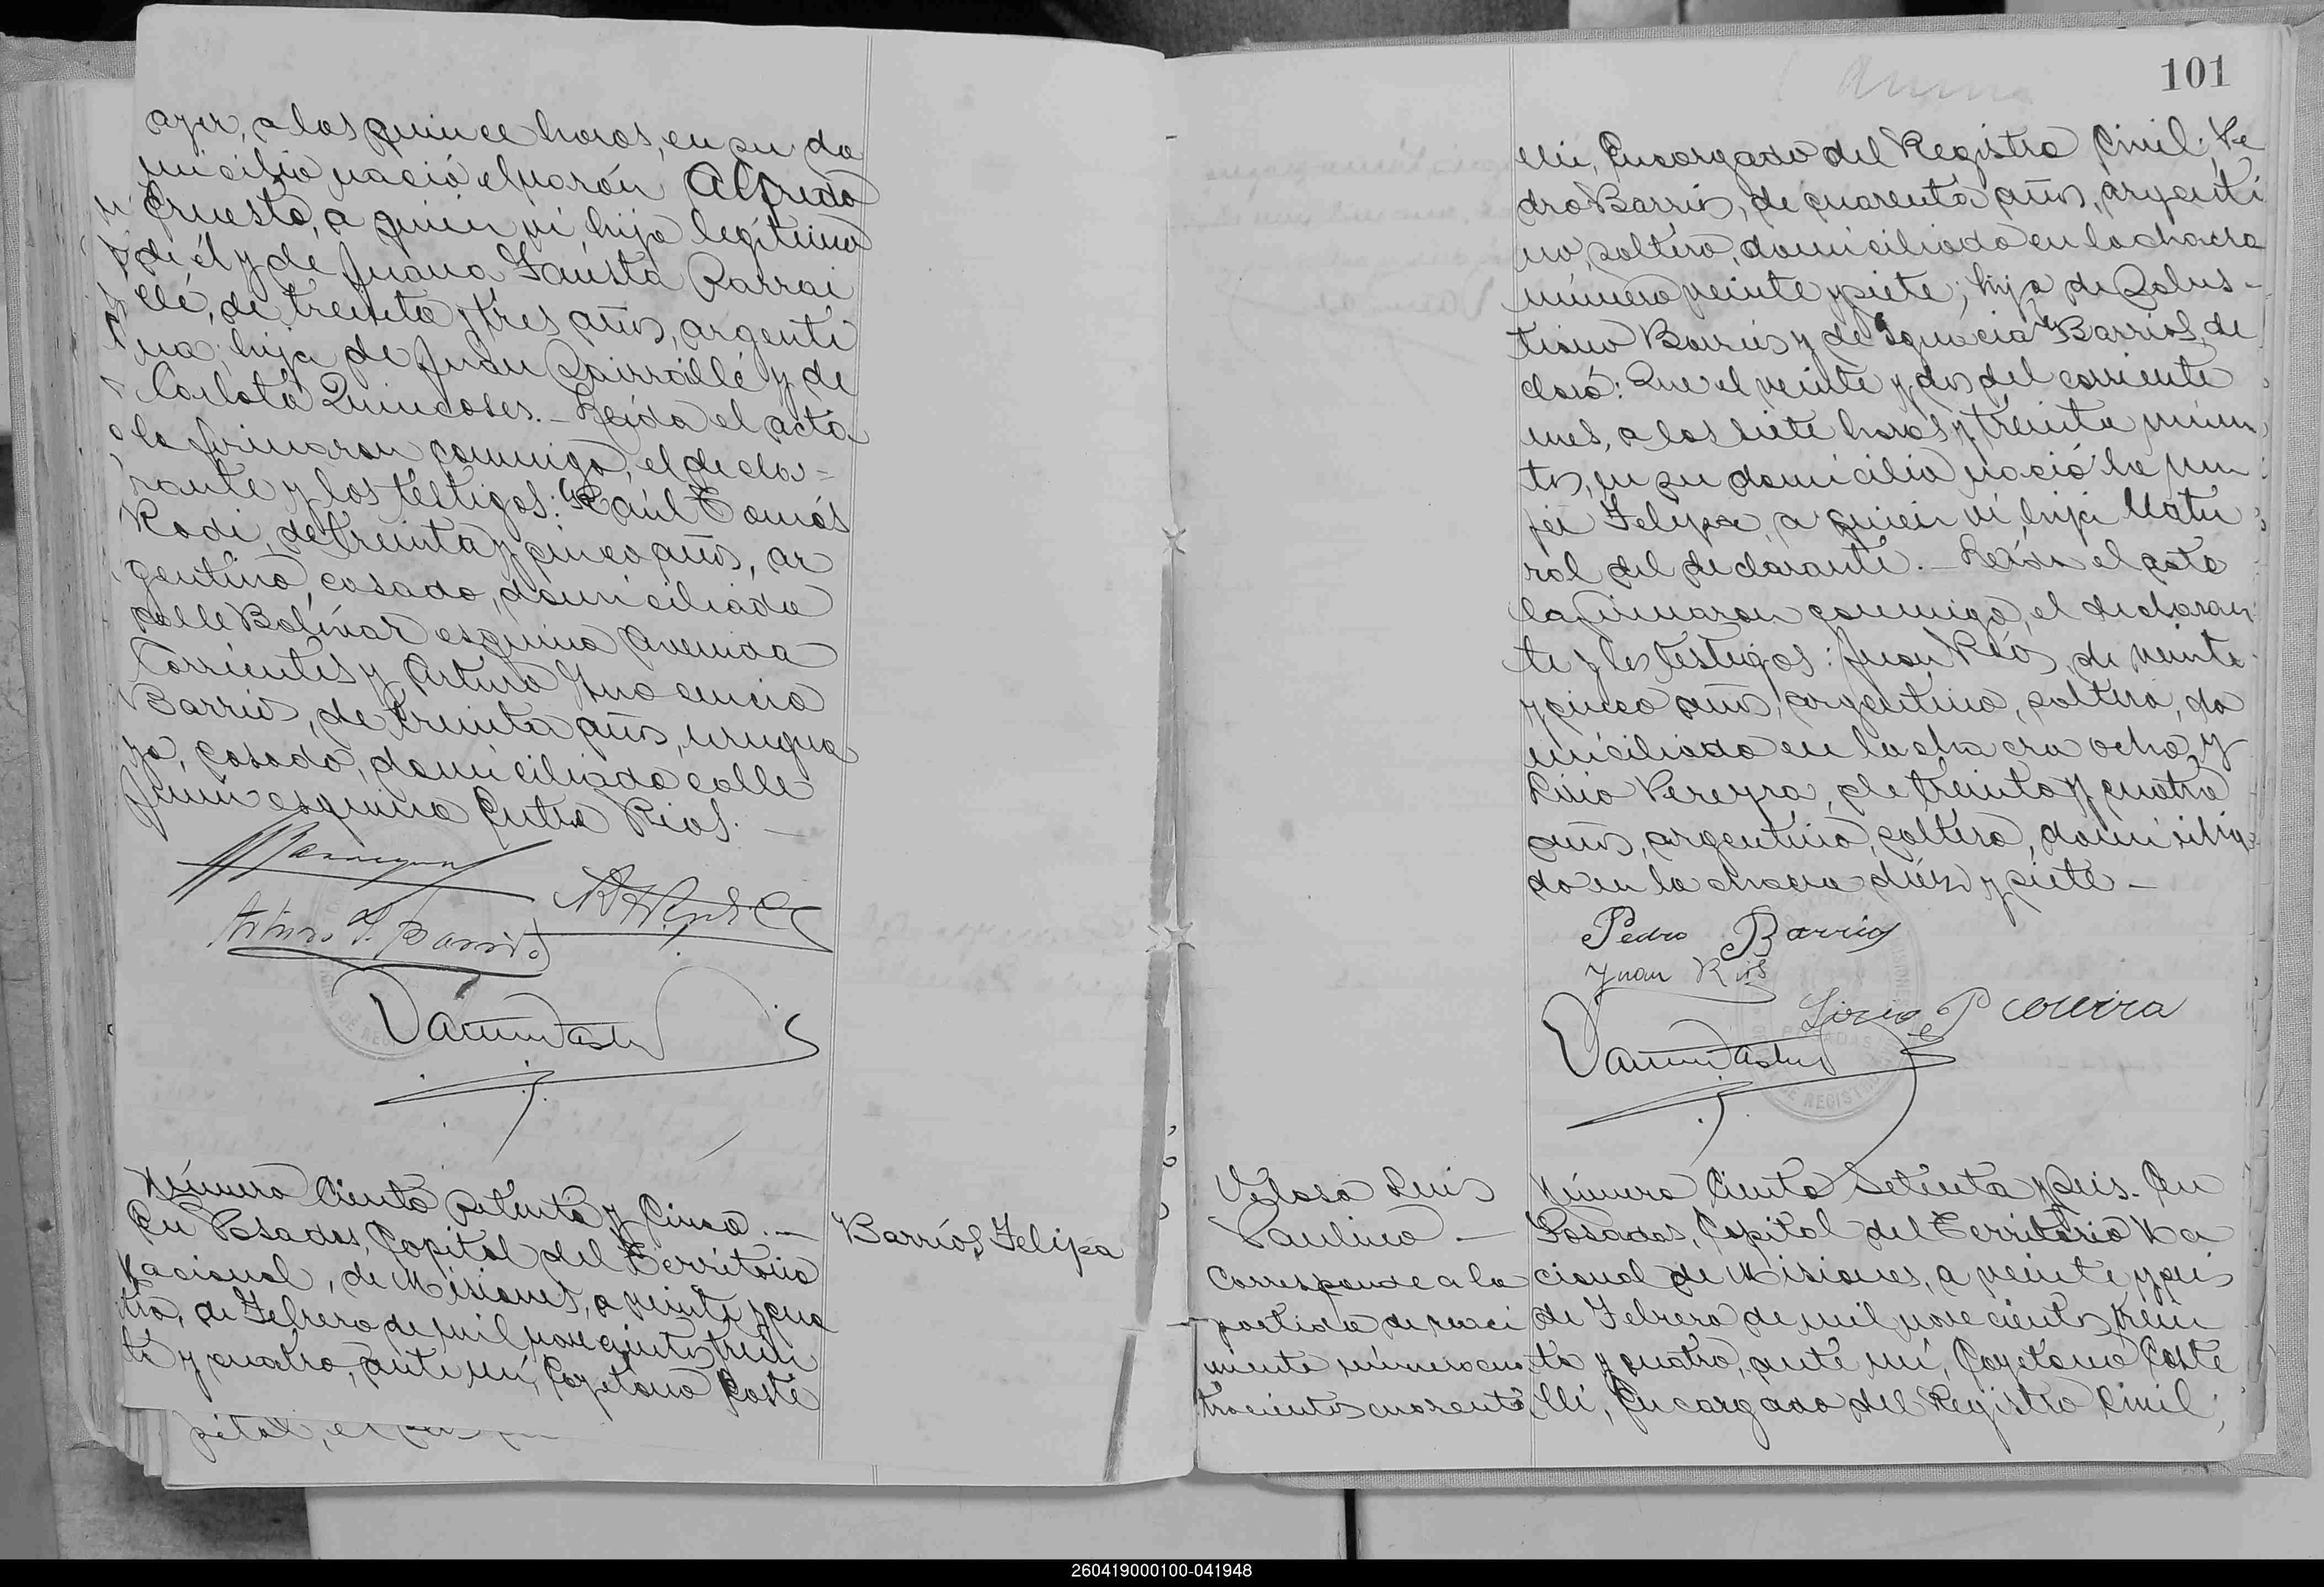 ayer, a las quince horas, en su do
micilio nació el varón Alfredo
Ernesto, a quien ví hijo legítimo
de él y de Juana Fausta Parrai
llé, de treinta y tres años, argenti
na; hija de Juan Pairraillé y de
Carlota Quincoses.- Leída el acta
la firmaron conmigo, el decla=
rante y los testigos: Raúl Tomás
Rodi, de treinta y cinco años, ar
gentino, casado, domiciliado
calle Bolívar esquina Avenida
Corrientes y Arturo Inocencio
Barrios, de treinta años, urugua
yo, casado, domiciliado calle
Junin esquina Entre Rios. -
Arturo I. Barrios
Número Ciento setenta y Cinco. -
En Posadas, Capital del Territorio
Nacional, de Misiones, a veinte y cua
tro, de Febrero de mil novecientos trein
ta y cuatro, ante mí, Cayetano Caste
Barrios Felipa
pital, el
101
lli, Encargado del Registro Civil; Pe
dro Barrios, de cuarenta años, argenti
no, soltero, domiciliado en la chacra
número veinte y siete; hijo de Salus-
tiano Barrios y de Ignacia Barrios, de
claró: Que el veinte y dos del corriente
mes, a las siete horas y treinta minu
tos, en su domicilio nació la mu
jer Felipa, a quien ví hija natu
ral del declarante.- Leída el acta
la firmaron conmigo, el declaran
te y los testigos: Juan Ríos, de veinte
y cinco años, argentino, soltero, do
miciliado en la chacra ocho y
Lirio Pereyra, de treinta y cuatro
años, argentino, soltero, domicilia
do en la chacra diez y siete -
Pedro Barrios
Juan Rios
Lirio Pereira
Veloso Luis
Paulino -
Corresponde a la
partida de naci
miento número cua
trocientos cuarenta
Número Ciento Setenta y seis. En
Posadas, Capital del Territorio Na
cional de Misiones, a veinte y seis
de Febrero de mil novecientos trein
ta y cuatro, ante mí, Cayetano Caste
lli, Encargado del Registro Civil;
260419000100-041948